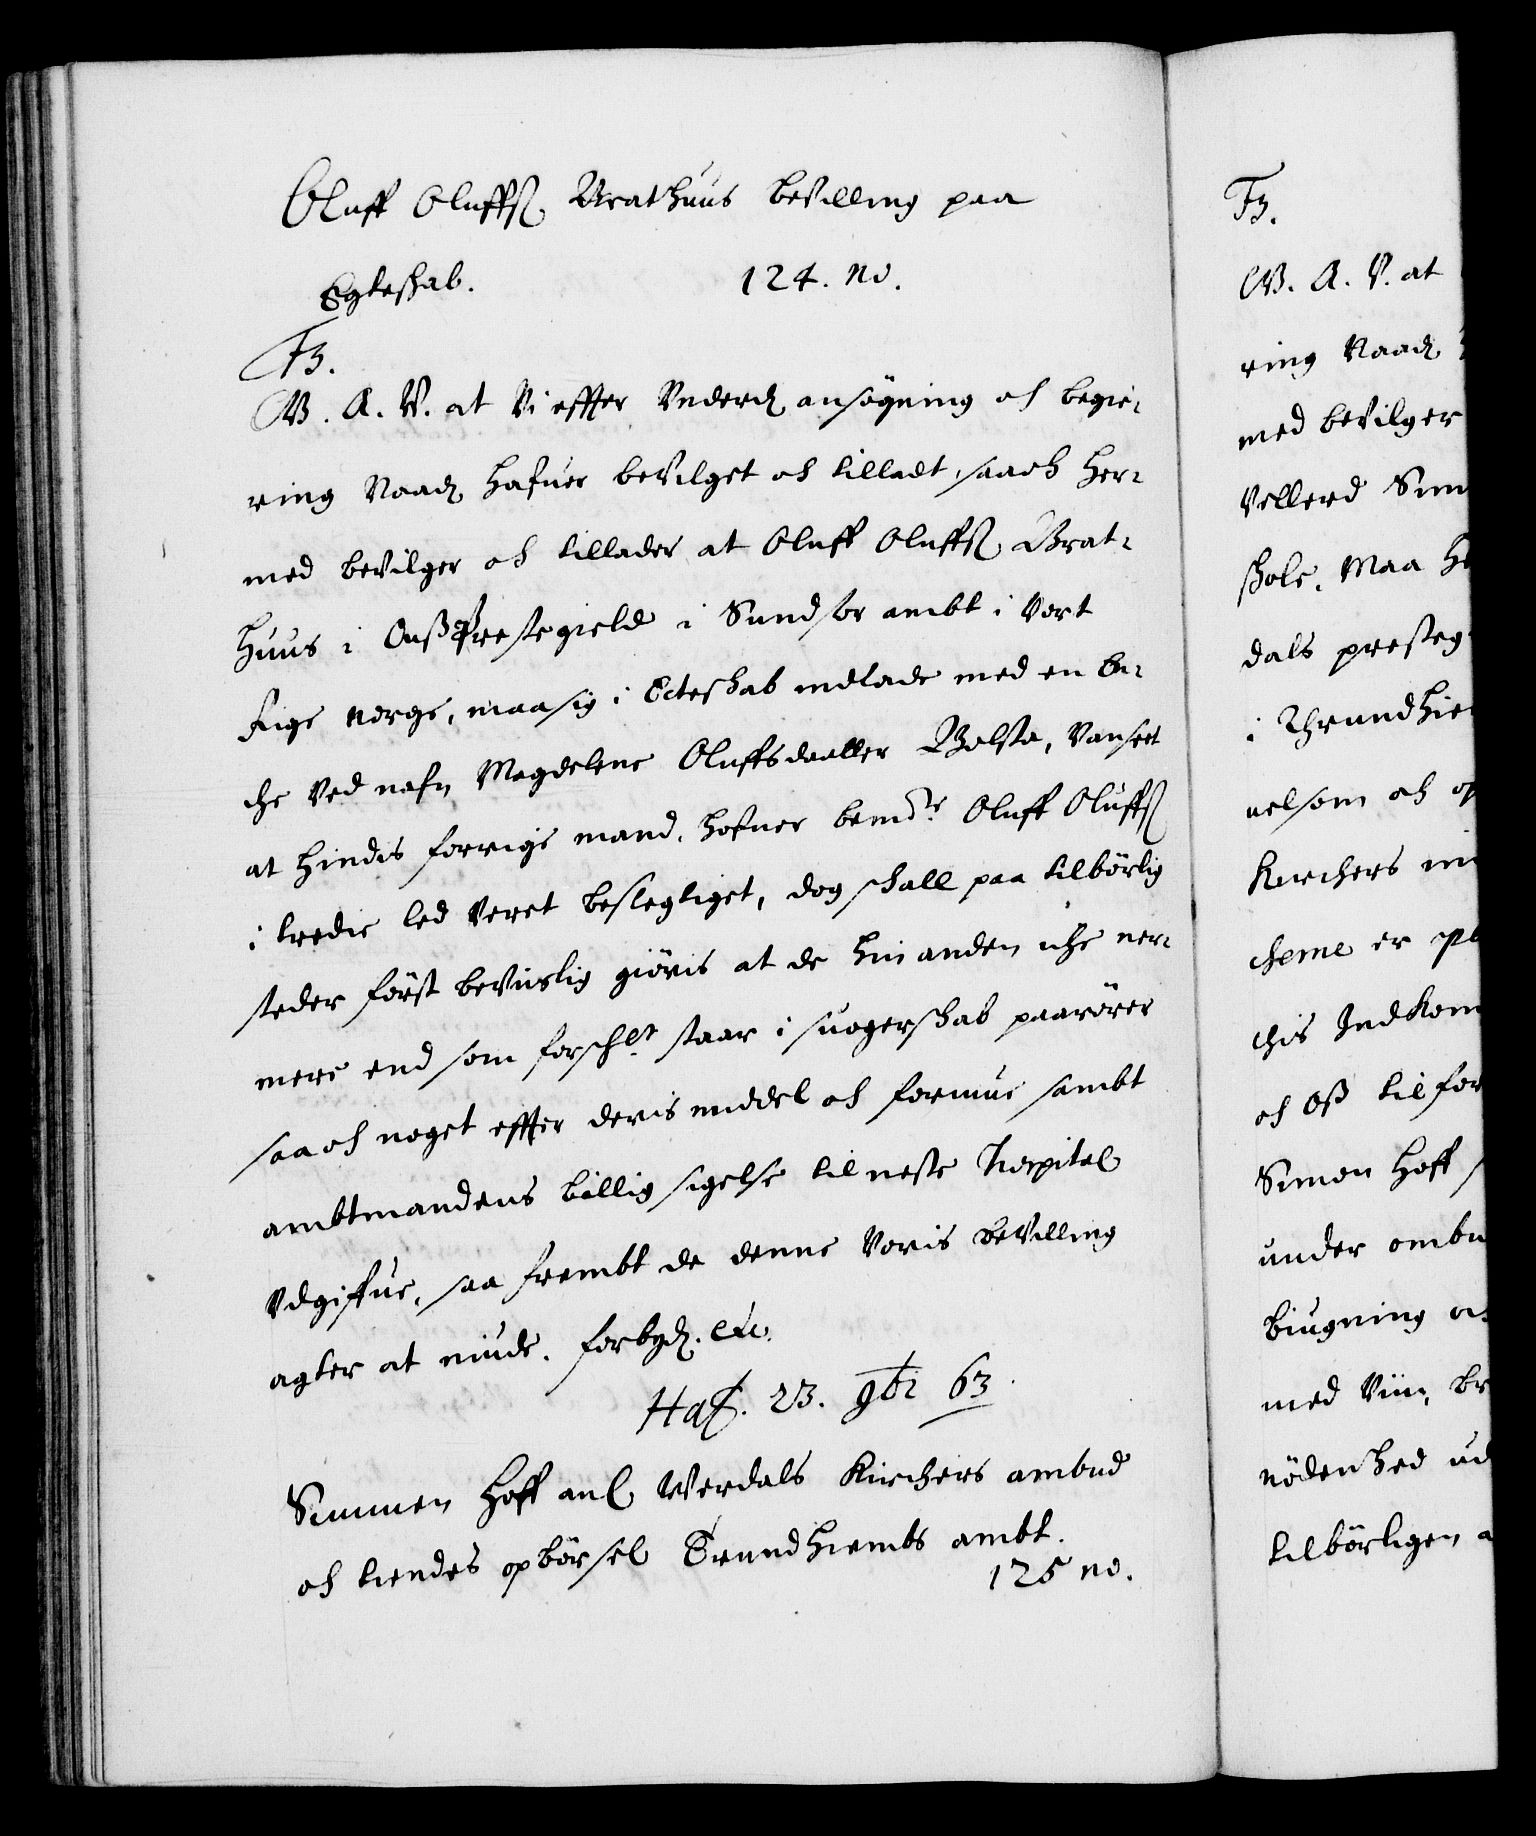 Oluff Oluffß Brathuus beVilling paa
Egteschab. 124. No.
F3.
W. A. V. at Vi effter Vnderd. ansøgning och begie-
ring Naad. hafuer beVilget och tilladt, saa och her-
med beVilger och tillader at Oluff Oluffß Brat-
huus i Præstegield i Sundfør ambt i Vort
Rige Norge, maa sig i Ecteschab indlade med en En-
che Ved nafn Magdelene Oluffsdaatter Bolsta, Vanseet
at hindis forrige mand, hafuer bemte Oluff Oluffß
i tredie led Veret beslegtiget, dog schall paa tilbørlig
steder først beVislig giøris at de hin anden iche ner-
mere end som forschlt staar i suogerschab paarører
saa och noget effter deris middel och formue sambt
ambtmandens billig sigelse til neste Hospital
Vdgiffue, saa frembt de denne Voris beVilling
agter at niude. forbyd. etc.
Haf. 23. 9bi 63
Simmen Hoff anl Werdals Kirchers ambud
och tiendes opbørsel Trundhiembs ambt.
125 no.
F3.
W. A. V. at
ring Naad.
med beVilger
Vellerd Sim
schole, Maa he
dals presteg
i Thrundhie
uelsom och op
Kirchers in
cherne er
chis Indkom
och Oß tilfor
Simon Hoff s
under ombu
biugning oc
med Viin, br
nödenhed ud
tilbørligen a